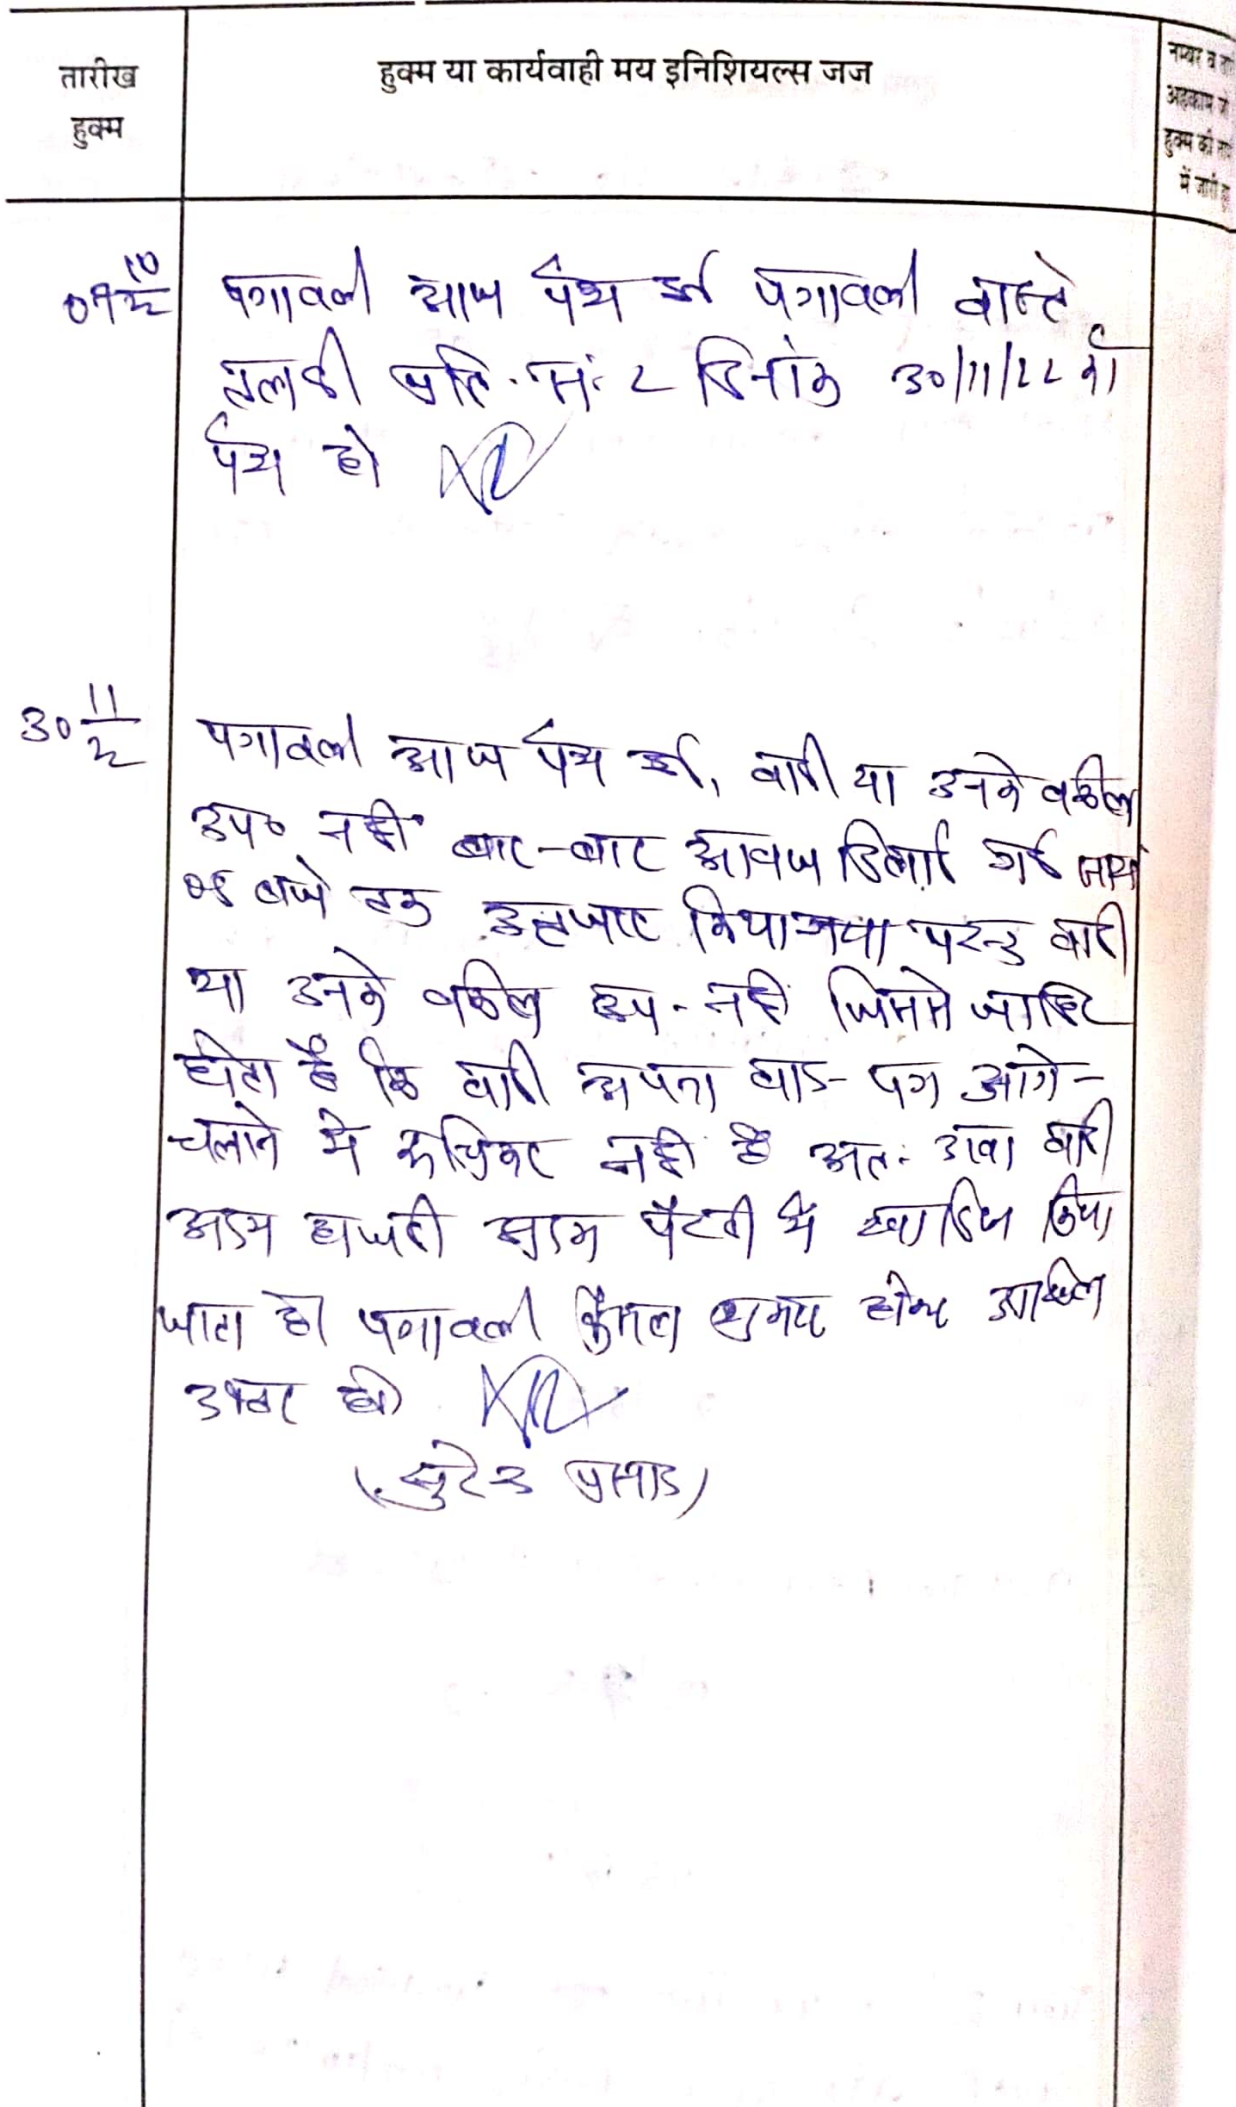 तारीख
हुक्म
हुक्म या कार्यवाही मय इनिशियल्स जज
नम्बर व
अहकाम
हुक्म की
में जारी
पत्रावली आज पेश हुई पत्रावली वास्ते
तलबी प्रति. सं. 2 दिनांक 30/11/22 को
पेश हो
30 11/22
पत्रावली आज पेश हुई, वादी या उनके वकील
उप० नहीं बार-बार आवाज दिलाई गई सायं
05 बजे तक इन्तजार किया गया परन्तु वादी
या उनके वकील उप. नहीं जिससे जाहिर
होता है कि वादी अपना वाद-पत्र आगे-
चलाने में रूचिकर नहीं है अतः दावा वादी
अदम हाजरी अदम पैरवी में खारिज किया
जाता है। पत्रावली फैसल शुमार होकर दाखिल
दफ्तर हो।
(सुरेन्द्र प्रसाद)